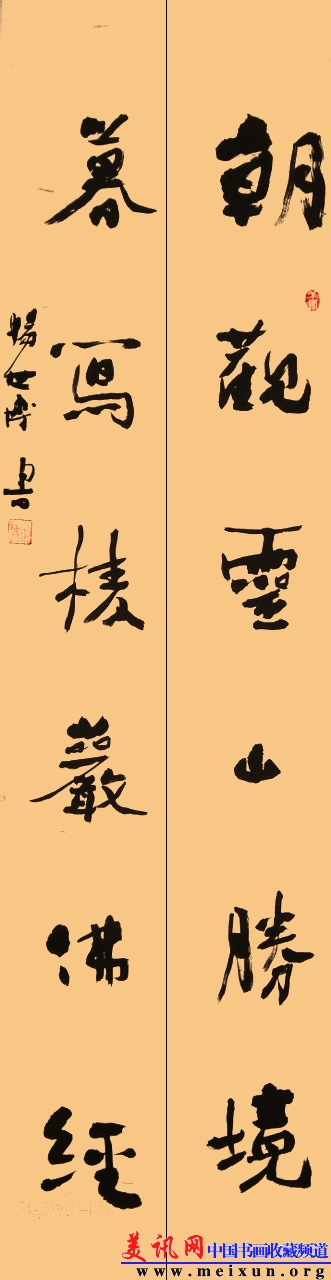 朝觀靈山勝境
暮寫棱嚴佛經
楊世博書
美讯网 中国书画收藏频道
www.meixun.org